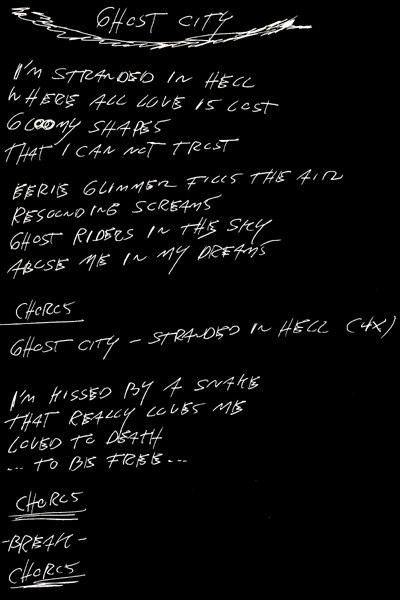 GHOST CITY
I'M STRANDED IN HELL
WHERE ALL LOVE IS LOST
GLOOMY SHAPES
THAT I CAN NOT TRUST
EERIE GLIMMER FILLS THE AIR
RESOUNDING SCREAMS
GHOST RIDERS IN THE SKY
ABUSE ME IN MY DREAMS
CHORUS
GHOST CITY - STRANDED IN HELL (4X)
I'M HISSED BY A SNAKE
THAT REALLY LOVES ME
LOVED TO DEATH
... TO BE FREE ...
CHORUS
-BREAK-
CHORUS